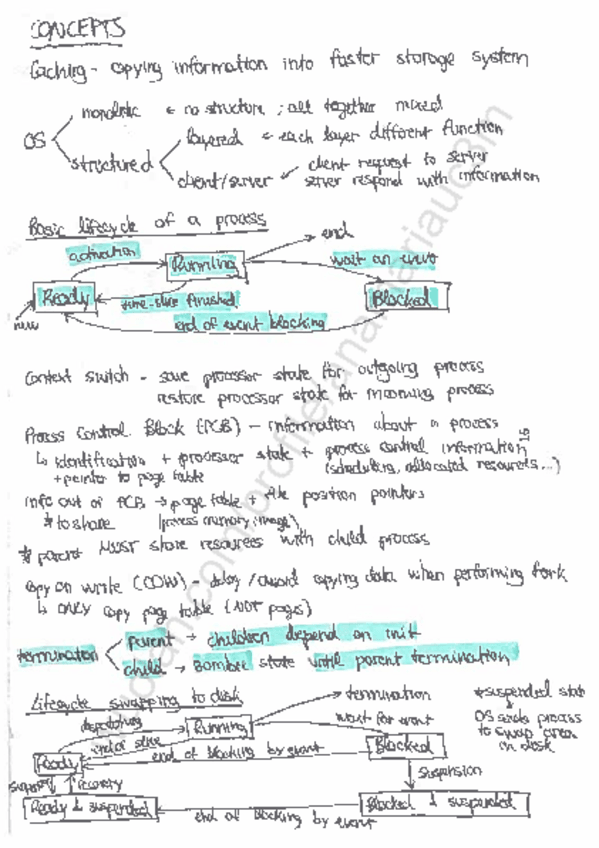 CONCEPTS
Caching - copying information into faster storage system
monolithic ← no structure ; all together mixed
OS
layered ← each layer different function
structured
client/server
client request to server
server respond with information
Basic lifecycle of a process
end
activation
Running
wait an
Ready
time-slice finished
Blocked
new
end of event blocking
Context switch - save processor state for outgoing process
restore processor state for incoming process
Process Control Block (PCB) - information about a process
↳ identification + processor state + process control information
+ pointer to page table
(scheduling, allocated resources...)
Info out of PCB → page table + file position pointers
* to share
(process memory image)
* parent MUST share resources with child process
Copy on write (COW) - delay / avoid copying data when performing fork
↳ ONLY copy page table (NOT pages)
parent → children depend on init
termination
child → state until parent termination
Lifecycle swapping to disk
termination
* suspended state
dispatching
Running
wait for event
OS sends process
to swap area
on disk
end of slice
Ready
end of blocking by event
Blocked
recovery
suspension
Ready & suspended
Blocked & suspended
end of blocking by event